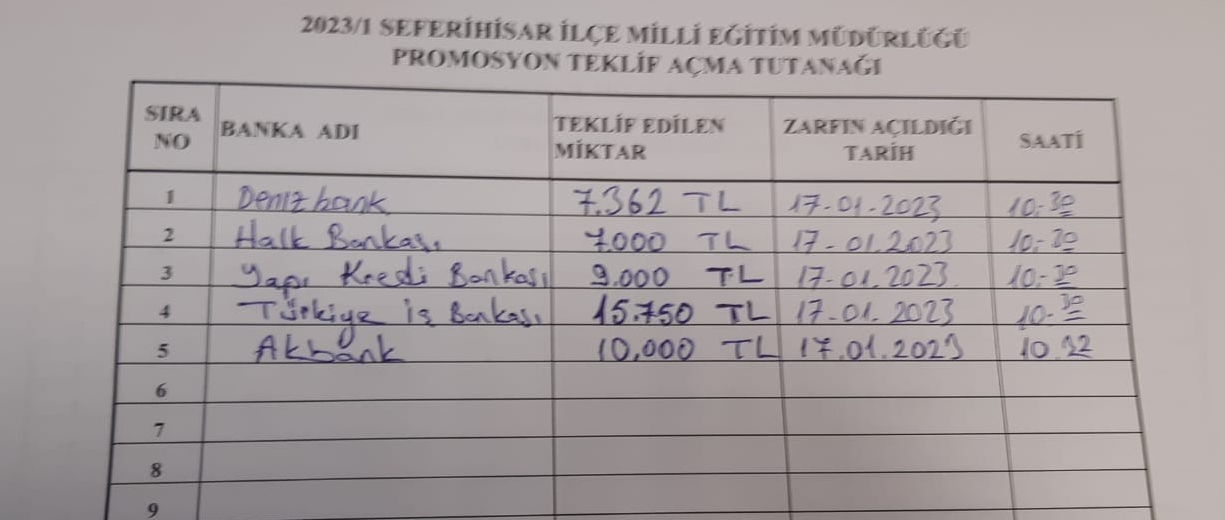 2023/1 SEFERİHİSAR İLÇE MİLLİ EĞİTİM MÜDÜRLÜĞÜ
PROMOSYON TEKLİF AÇMA TUTANAĞI
SIRA NO BANKA ADI TEKLİF EDİLEN MİKTAR ZARFIN AÇILDIĞI TARİH SAATİ
1 Denizbank 7.362 TL 17-01-2023 10:30
2 Halk Bankası 7.000 TL 17-01.2023 10:30
3 Yapı Kredi Bankası 9.000 TL 17-01.2023 10:30
4 Türkiye iş Bankası 15.750 TL 17-01.2023 10:30
5 Akbank 10.000 TL 17.01.2023 10
6
7
8
9